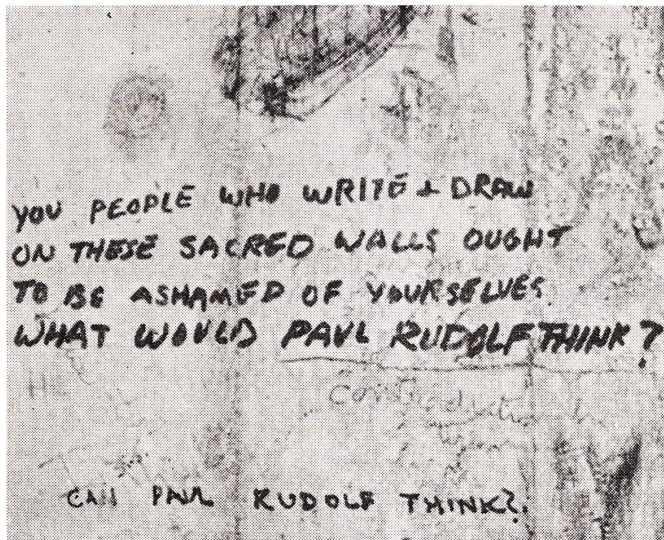 YOU PEOPLE WHO WRITE + DRAW
ON THESE SACRED WALLS OUGHT
TO BE ASHAMED OF YOURSELVES
WHAT WOULD PAUL RUDOLF THINK?
CAN PAUL RUDOLF THINK?